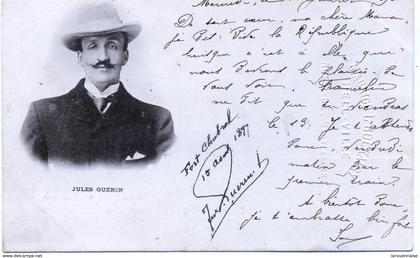 De tout cœur, ma chère Mama
je dis: Vive la République
puisque c'est à elle que
nous devrons le plaisir de
vous voir. Francelin
me dit que tu viendras
le 13. Je t'attends
pour vendredi
matin par le
premier train.
A bientôt donc
je t'embrasse bien fort
Fort Chabrol
15 août 1899
Jules Guérin
JULES GUÉRIN
larouennaise